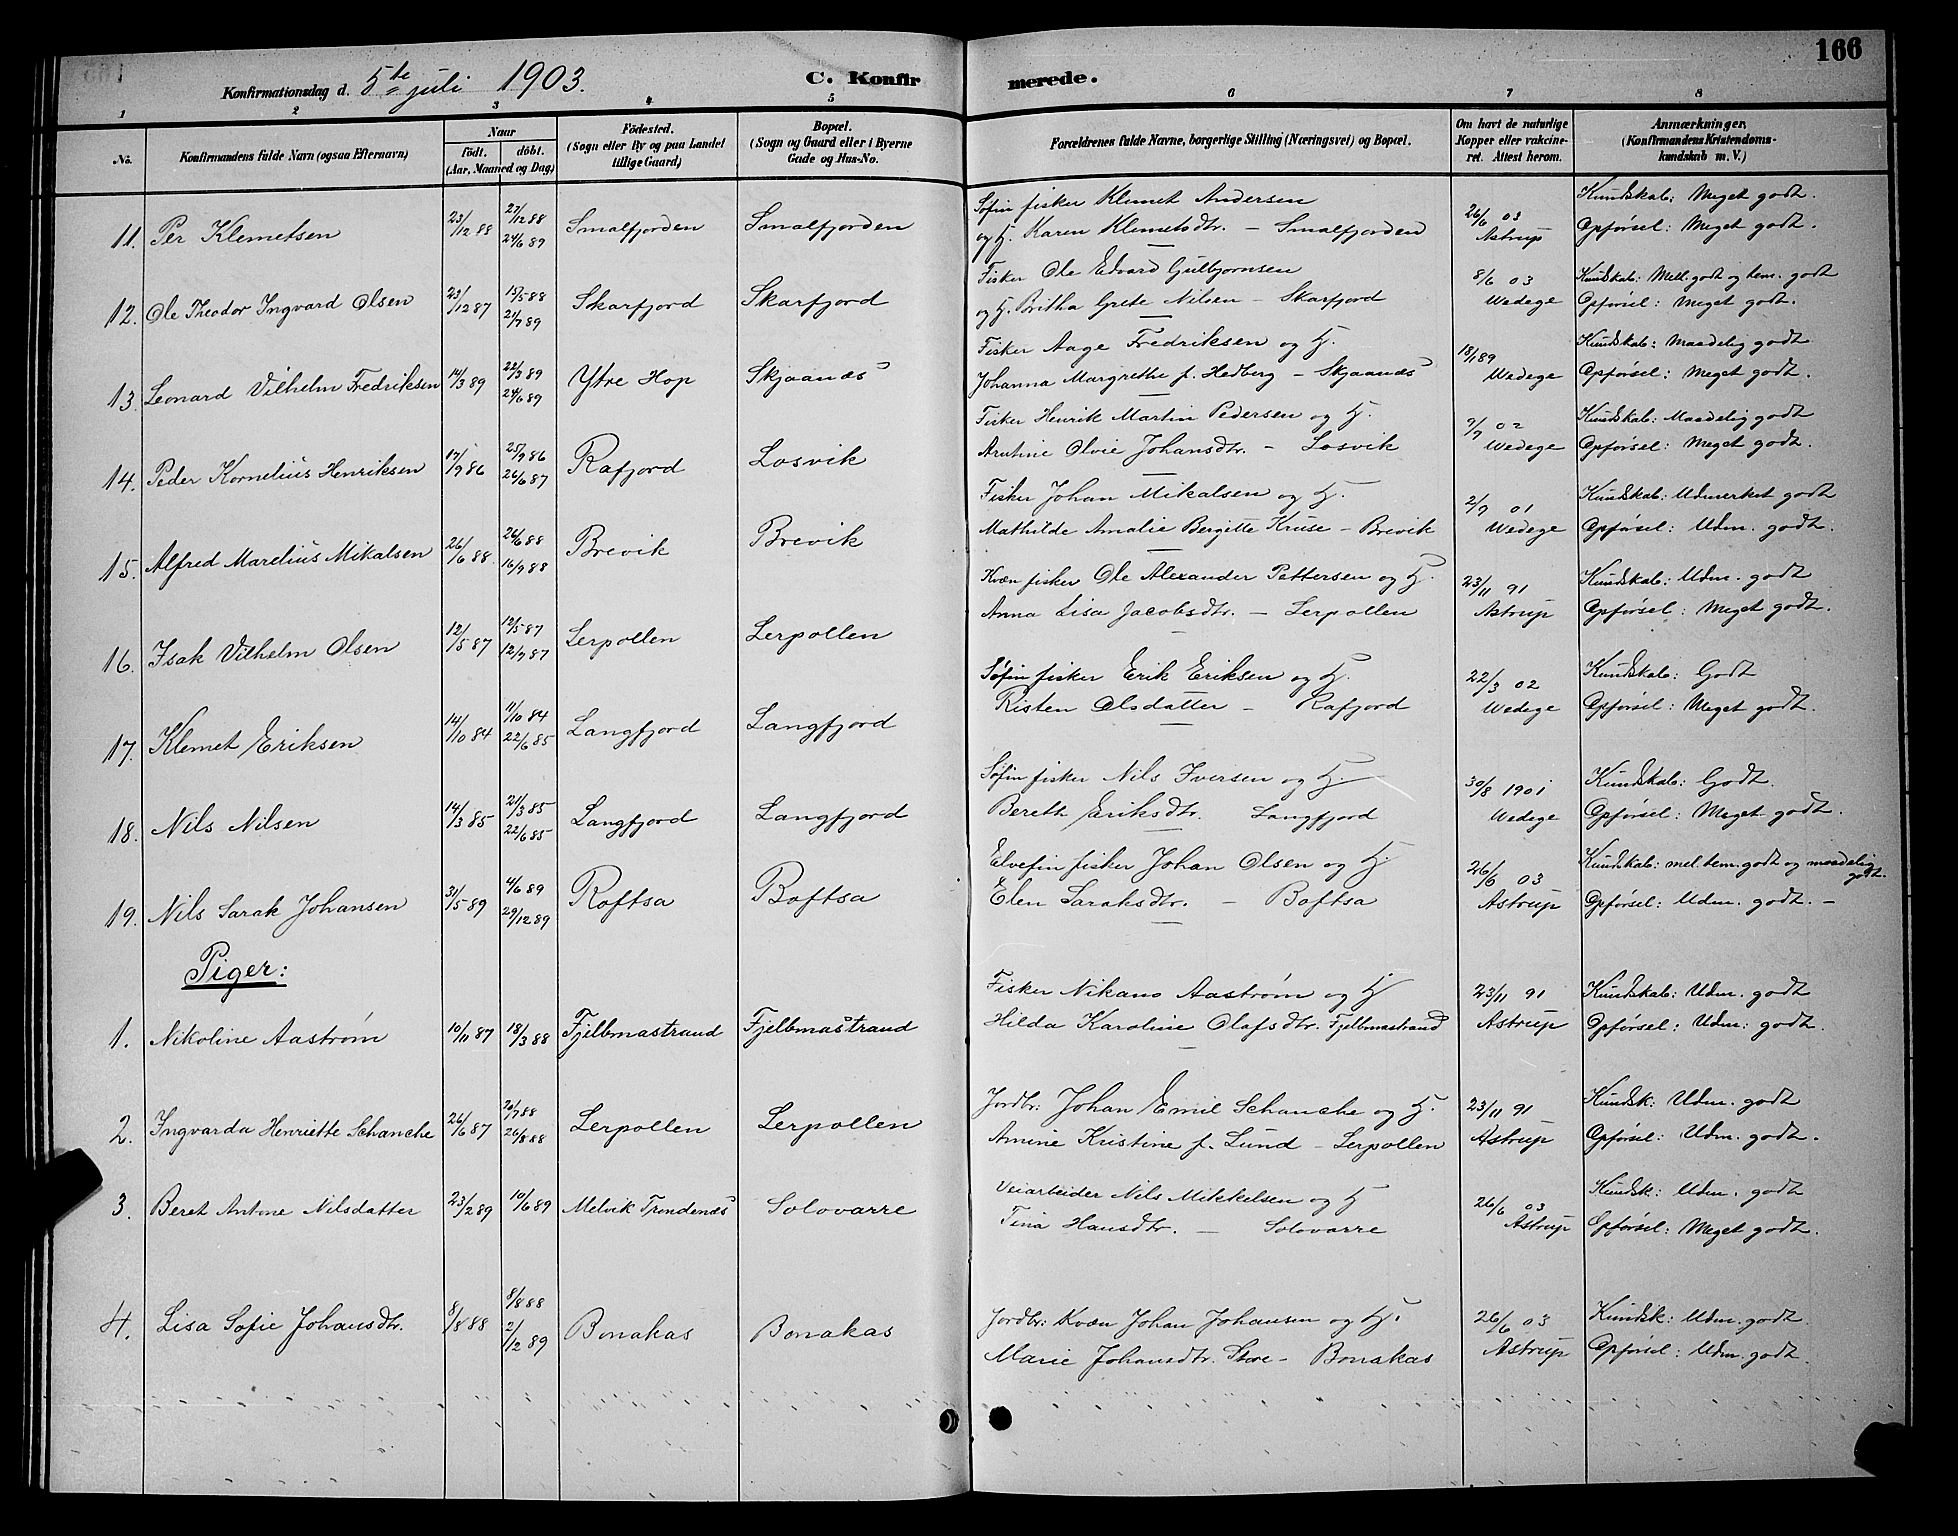 166
Konfirmationsdag d. 5te juli 1903. C. Konfirmerede.
1 2 3 4 5 6 7 8
No. Konfirmandens fulde Navn (ogsaa Efternavn) Naar födt. döbt. (Aar, Maaned og Dag) Födested. (Sogn eller By og paa Landet tillige Gaard) Bopæl. (Sogn og Gaard eller i Byerne Gade og Hus-No. Forældrenes fulde Navne, borgerlige Stilling (Næringsvei) og Bopæl. Om havt de naturlige Kopper eller vakcineret. Attest herom. Anmærkninger. (Konfirmandens Kristendomskundskab m. V.)
11. Per Klemetsen 23/12 88 27/12 88 Smalfjorden Smalfjorden Søfin fisker Klemet Andersen 26/6 03 Kundskab: Meget godt.
24/6 89 og H. Karen Klemetsdtr. – Smalfjorden Astrup Opførsel: Meget godt.
12. Ole Theodor Ingvard Olsen 23/12 87 15/5 88 Skarfjord Skarfjord Fisker Ole Edvard Gulbjørnsen 8/6 03 Kundskab: Mell. godt og tem. godt
21/7 89 og H. Britha Grete Nilsen – Skarfjord Wedege Opførsel: Meget godt.
13. Leonard Vilhelm Fredriksen 14/3 89 22/3 89 Ytre Hop Skjaanæs Fisker Aage Fredriksen og H. 18/1 89 Kundskab: Maadelig godt
24/6 89 Johanna Margrethe f. Hedberg – Skjaanæs Wedege Opførsel: Meget godt.
14. Peder Kornelius Henriksen 17/9 86 25/9 86 Rafjord Losvik Fisker Henrik Martin Pedersen og H. 9/7 02 Kundskab: Maadelig godt
26/6 87 Arutine Olvie Johansdtr. – Losvik Wedege Opførsel: Meget godt.
15. Alfred Marelius Mikalsen 26/6 88. 26/6 88 Brevik Brevik Fisker Johan Mikalsen og H. 2/7 01 Kundskab: Udmerket godt
16/9 88 Mathilde Amalie Bergitte Kruse – Brevik Wedege Opførsel: Udm. godt.
16. Isak Vilhelm Olsen 12/5 87 12/5 87 Lerpollen Lerpollen Kvæn fisker Ole Alexander Pettersen og H. 23/11 91 Kundskab: Udm. godt
12/7 87 Anna Lisa Jacobsdtr. – Lerpollen Astrup Opførsel: Meget godt.
17. Klemet Eriksen 14/10 84 11/10 84 Langfjord Langfjord Søfin fisker Erik Eriksen og H. 22/3 02 Kundskab: Godt
22/6 85 Risten Olsdatter – Rafjord Wedege Opførsel: Meget godt.
18. Nils Nilsen 14/3 85 21/3 85 Langfjord Langfjord Søfin fisker Nils Iversen og H. 30/8 1901 Kundskab: Godt.
22/6 85 Bereth Eriksdtr. Langfjord Wedege Opførsel: Meget godt.
19. Nils Sarak Johansen 31/5 89 4/6 89 Roftsa Boftsa Elvefin fisker Johan Olsen og H. 26/6 03 Kundskab: mel. tem. godt og maadelig godt.
29/12 89 Elen Saraksdtr. – Boftsa Astrup Opførsel: Udm. godt. –
Piger:
1. Nikoline Aastrøm 10/11 87 18/3 88 Fjelbmastrand Fjelbmastrand Fisker Nikano Aastrøm og H 23/11 91 Kundskab: Udm. godt
Hilda Karoline Olafsdtr. Fjelbmastrand Astrup Opførsel: Udm: godt.
2. Ingvarda Henriette Schanche 26/6 87 20/7 88 Lerpollen Lerpollen Jordbr: Johan Emil Schanche og H. 23/11 91 Kundsk: Udm. godt
26/8 88 Amine Kristine f. Lund – Lerpollen Astrup Opførsel: Udm. godt.
3. Beret Antone Nilsdatter 23/2 89 10/6 89 Melvik Trondenæs Solovarre Veiarbeider Nils Mikkelsen og H 26/6 03 Kundsk: Udm. godt
Tina Hansdtr. – Solovarre Astrup Opførsel: Meget godt.
4. Lisa Sofie Johansdtr. 8/8 88 8/8 88 Bonakas Bonakas Jordbr: Kvæn Johan Johansen og H. 26/6 03 Kundsk: Udm. godt.
2/12 89 Marie Johansdtr. Store – Bonakas Astrup Opførsel: Udm. godt.